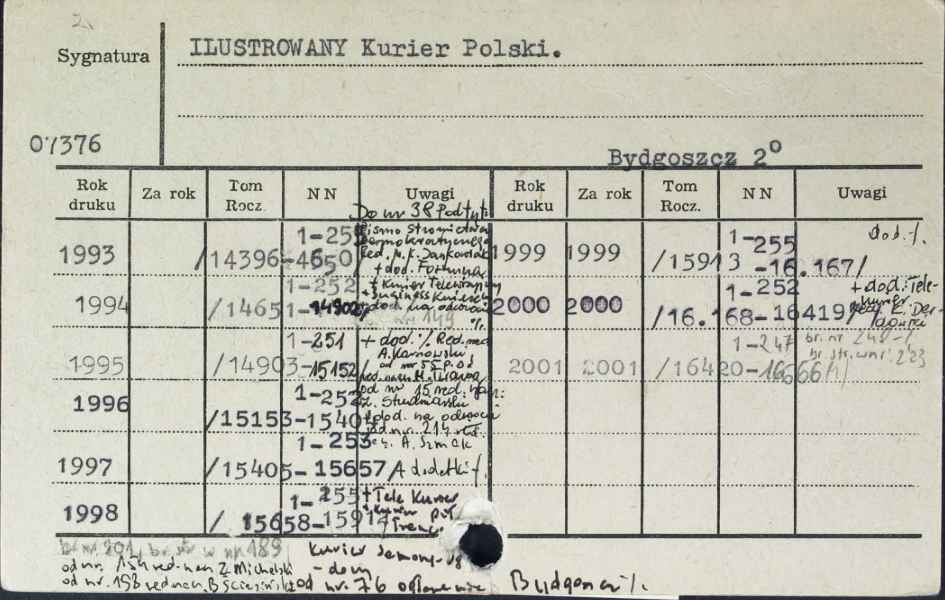 Sygnatura
ILUSTROWANY Kurier Polski.
07376
Bydgoszcz 2°
Rok druku Za rok Tom Rocz. NN Uwagi Rok druku Za rok Tom Rocz. NN Uwagi
Do nr 38 Podtyt:
1993 /14396-4650/ 1-255
Pismo Stronnictwa
Demokratycznego
Red. M. K. Jankowiak
+ dod. Fortuna
1994 /14651-14902/ 1-252
+ Kurier Telewizyjny
+ Business Kurier
nr 149
1995 /14903-15152/ 1-251
+ dod. /. Red. nacz.
A. Karnowski
od nr 55 p.o.
1996 /15153-15404 1-252
od nr 15 red. nacz:
+ dod. na odwrocie
od nr. 214 red.
A. Szmak
1997 /15405-15657/ 1-253
A dodatki /.
1998 /15658-1591 1-255
+ Tele Kurier
+ Kurier
1999 1999 /15913-16.167/ 1-255
dod. /.
2000 2000 /16.168-16419/ 1-252
+ dod: Tele-
kurier
2001 2001 /16420-16666/ 1-247
br. nr 248-
br. str. w nr. 223
br. nr. 201, br. str w nr 189
od nr. 154 red. nacz Z. Michalski
od nr. 158 red nacz. B.
Kurier Samorzą-
- dowy
od nr. 76 ogłoszenia Bydgoszcz /.